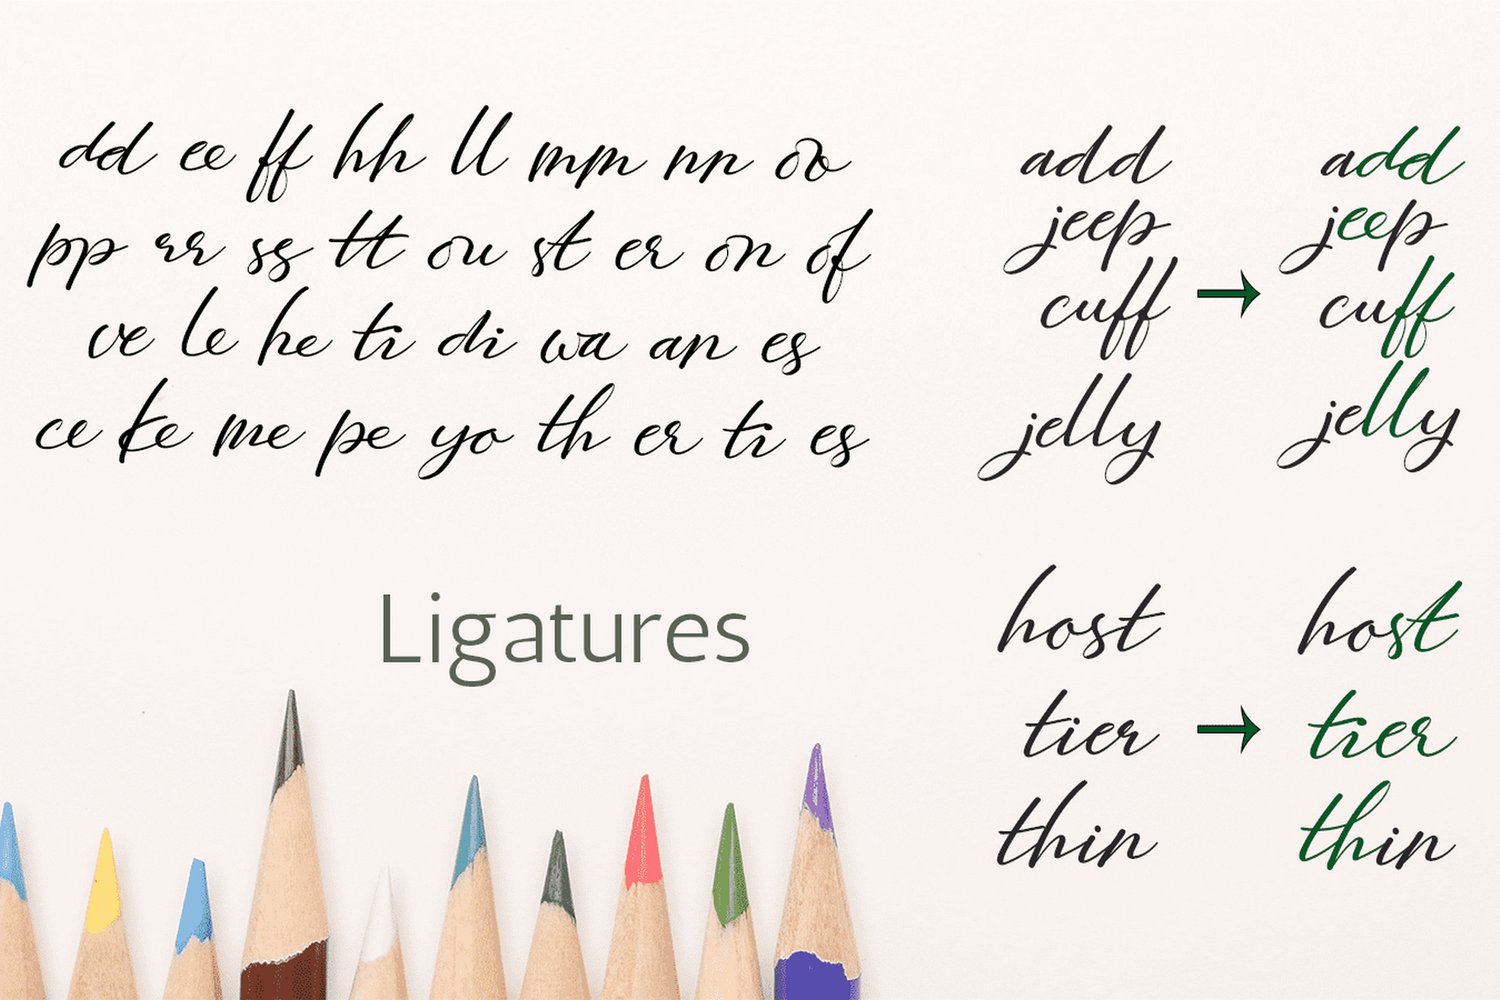 dd ee ff hh ll mm nn oo
pp rr ss tt ou st er on of
ve le he ti di wa an es
ce ke me pe yo th er ti es
Ligatures
add → add
jeep → jeep
cuff → cuff
jelly → jelly
host → host
tier → tier
thin → thin